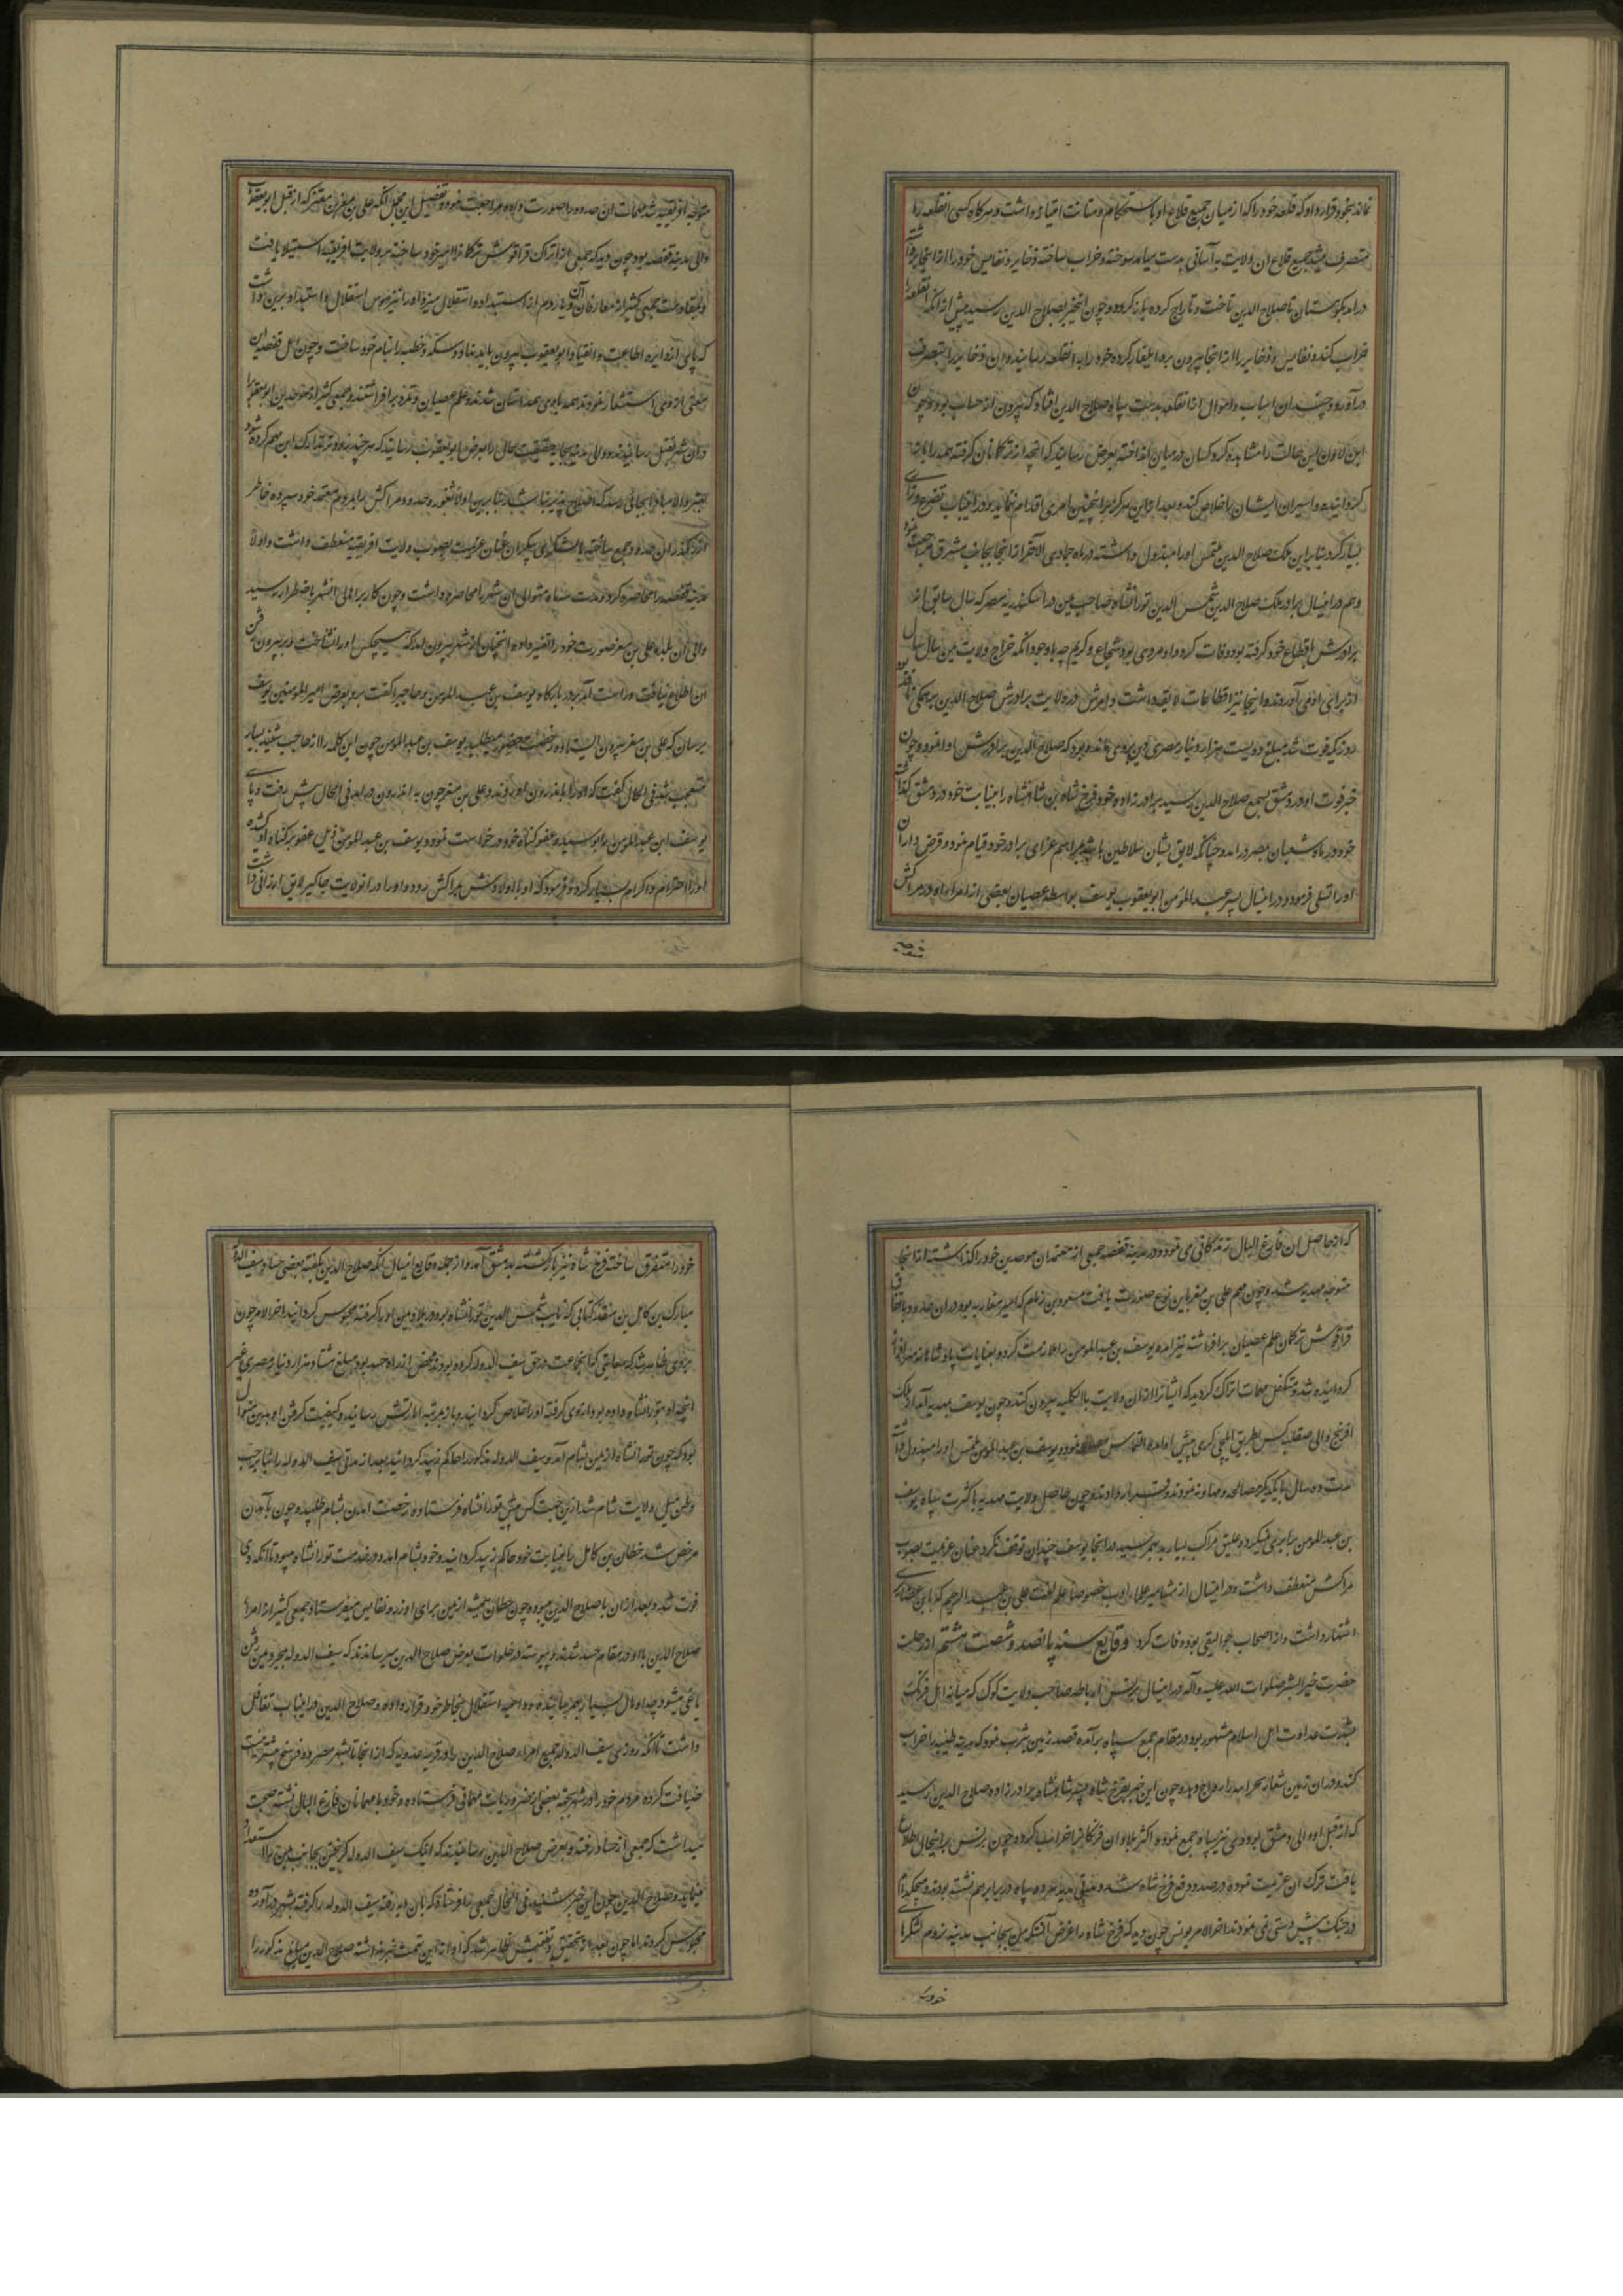 نماند بخود قرار داد که قلعه خود را که از میان جمیع قلاع او باستحکام و متانت امتیاز داشت و هرگاه کسی انقلعه را
متصرف میشد جمیع قلاع ان ولایت به آسانی بدست میامد سوخته و خراب ساخته ذخایر و نفایس خود را از انجا برداشته
در امد بکوهستان تا صلاح الدین تاخت و تاراج کرده باز کردد و چون اینخبر بصلاح الدین رسید پیش از انکه انقلعه را
خراب کند و نفایس و ذخایر را از انجا بیرون برد ایلغار کرده خود را به انقلعه رسانید و ان ذخایر را بتصرف
در آورد و چندان اسباب و اموال از انقلعه بدست سپاه صلاح الدین افتاد که بیرون از حساب بود و چون
ابن لاون این حالت را مشاهده کرد کسان در میان انداخته بعرض رسانید که انچه از ترکمانان گرفته همه را باز
گردانیده و اسیران ایشان را خلاص کند و بعد از این هرگز بر اینچنین امری اقدام ننماید و در اینباب تضرع و زاری
بسیار کرد بنا بر این ملک صلاح الدین ملتمس او را مبذول داشته در ماه جمادی الاخر از انجا بجانب مشرق مراجعت نمود
و هم در اینسال برادر ملک صلاح الدین شمس الدین تورانشاه صاحب یمن در اسکندریه مصر که سال سابق از
برادرش باقطاع خود گرفته بود وفات کرد و او مردی بود شجاع و کریم چه با وجود انکه خراج ولایت یمن سال بسال
از برای او می آوردند و اینجا نیز اقطاعات لایقه داشت و امرش در ولایت برادرش صلاح الدین بر همکی نافذ بود
روزیکه فوت شد مبلغ دویست هزار دینار مصری دین بروی مانده بود که صلاح الدین برادرش ادا نمود و چون
خبر فوت او در دمشق بسمع صلاح الدین رسید برادر زاده خود فرخ شاه بن شاهنشاه را بنیابت خود در دمشق گذاشته
خود در ماه شعبان بمصر در امد و چنانکه لایق بشان سلاطین باشد بمراسم عزای برادر خود قیام نمود و قرض داران
او را تسلی فرمود و در اینسال پسر عبد المومن ابو یعقوب یوسف بواسطه عصیان بعضی از امراء او در مراکش
متوجه افریقیه شد مهمات ان حدود را صورت داده مراجعت نمود و تفصیل این مجمل انکه علی بن معز بن معتز که از قبل ابو یعقوب
والی مدینه قفصه بود چون دید که جمعی از اتراک قراقوش ترکمانرا امیر خود ساخته بر ولایت افریقیه استیلا یافت
که پای از دایره اطاعت و انقیاد ابو یعقوب بیرون باید نهاد و سکه و خطبه را بنام خود ساخت و چون اهل قفصه این
معنی از وی استشعار نمودند همه با وی همداستان شدند و علم عصیان و تمرد بر افراشتند و جمعی کثیر از موحدین ابو یعقوب را
در ان شهر بقتل رسانیدند و والی مدینه بجایه حقیقت حال را بعرض ابو یعقوب رسانید که هر چند زودتر تدارک این مهم کرده شود
بهتر والا مبادا بجائی رسد که اصلاح پذیر نباشد بنا برین اولا ثغور و حدود مراکش را بمردم معتمد خود سپرده خاطر
از رهگذر ان حدود جمع ساخته با لشکری بیکران عنان عزیمت بصوب ولایت افریقیه منعطف داشت و اولا
مدینه قفصه را محاصره کرد و مدت سه ماه متوالی ان شهر را محاصره داشت و چون کار بر اهالی انشهر باضطرار رسید
والی ان بلده علی بن معز صورت خود را تغییر داده انچنان از شهر بیرون امد که هیچکس او را نشناخت و بر بیرون رفتن
او اطلاع نیافت و راست آمد بر در بارگاه یوسف بن عبد المومن و حاجب را گفت برو بعرض امیر المومنین یوسف
برسان که علی بن معز بیرون ایستاده رخصت حضور میطلبد یوسف بن عبد المومن چون این کلمه را از حاجب شنید بسیار
متعجب شد فی الحال گفت که او را باندرون اوردند و علی بن معز چون به اندرون در امد فی الحال پیش رفت و پای
یوسف ابن عبد المومن را بوسیده عفو گناه خود درخواست نمود و یوسف بن عبد المومن ذیل عفو بر گناه او کشیده
او را احترام و اکرام بسیار کرد و فرمود که او با اولادش بمراکش رود و او را در انولایت جاگیر لایق ارزانی داشت
که از حاصل ان فارغ البال زندگانی می نمود و در مدینه قفصه جمعی از معتمدان موحدین خود را گذاشته از انجا
متوجه مهدیه شد و چون مهم علی بن معز باین نوع صورت یافت مسعود بن زمام که امیر مغاربه بود در ان حدود و باتفاق
قراقوش ترکمان علم عصیان بر افراشته نیز امده یوسف بن عبد المومن را ملازمت کرد و بعنایات پادشاهانه سرافراز
گردانیده شد و متکفل مهمات اتراک گردید که اتراک را از ان ولایت بالکلیه بیرون کند و چون یوسف بمهدیه آمد از ملک
افرنج والی صقلیه کس بطریق ایلچی گری پیش او امده التماس صلح نمود و یوسف بن عبد المومن ملتمس او را مبذول داشته
مدت ده سال با یکدیگر مصالحه و مهادنه نمودند و قرار دادند و چون حاصل ولایت مهدیه با کثرت سپاه یوسف
بن عبد المومن برابری نمیکرد و علیق مراکب بسیار به هم نرسید در انجا یوسف چندان توقف نکرد عنان عزیمت بصوب
مراکش منعطف داشت و در اینسال از مشاهیر علماء ادب خصوصا علم لغت علی بن عبد الرحیم که بابن عصاری
اشتهار داشت و از اصحاب جوالیقی بود وفات کرد وقایع سنه پانصد و شصت و هشتم از رحلت
حضرت خیر البشر صلوات الله علیه و آله در اینسال برنس ارناط صاحب ولایت کرک که میانه اهل فرنگ
بشدت عداوت اهل اسلام مشهور بود در مقام جمع سپاه برآمده قصد زمین یثرب نمود که مدینه طیبه را خراب
که از قبل او والی دمشق بود وی نیز سپاه جمع نموده اکثر بلاد ان فرنگانرا خراب کرد و چون برنس بر اینحال اطلاع
یافت ترک ان عزیمت نموده در صدد دفع فرخ شاه شد و مدتی مدید هر دو سپاه در برابر هم نشسته بودند و هیچکدام
در جنگ پیش دستی نمی نمودند اخر الامر برنس چون دید که فرخ شاه را غرض آنست که من بجانب مدینه نروم لشکرهای
خود را متفرق ساخته فرخ شاه نیز باز گشته بدمشق آمد و از جمله وقایع اینسال انکه صلاح الدین بگفته بعضی حساد سیف الدوله
مبارک بن کامل بن منقذ کنانی که نایب شمس الدین تورانشاه بود در بلاد یمن او را گرفته محبوس گردانید اخر الامر چون
بروی ظاهر شد که سعایتی که انجماعت در حق سیف الدوله کرده بودند محض از راه حسد بود مبلغ هشتاد هزار دینار مصری غیر
انچه او بتورانشاه داده بود از وی گرفته او را خلاص گردانید و باز بمرتبه امارتش رسانید و کیفیت گرفتن او بدین منوال
بود که چون تورانشاه از یمن بشام آمد و سیف الدوله مذکور را حاکم زبید گردانید بعد از مدتی سیف الدوله را بنابر حب
وطن میل ولایت شام شد ازین جهت کس پیش تورانشاه فرستاده رخصت امدن بشام طلبید و چون بآمدن
مرخص شد حطان بن کامل را بنیابت خود حاکم زبید گردانید و خود بشام امد و در خدمت تورانشاه میبود تا انکه وی
فوت شد و بعد از ان با صلاح الدین میبود و چون حطان همیشه از یمن برای او زر و نفایس میفرستاد جمعی کثیر از امراء
صلاح الدین با او در مقام حسد شدند و پیوسته در خلوات بعرض صلاح الدین میرساندند که سیف الدوله بمجرد یمن رفتن
یاغی میشود چه او مال بسیار بهم رسانیده و داعیه استقلال بخاطر خود قرار داده و صلاح الدین در اینباب تغافل
داشت تا انکه روزی سیف الدوله جمیع امراء صلاح الدین را در قریه عدویه که از انجا تا بشهر مصر دو فرسخ بیشتر نیست
ضیافت کرده مردم خود را در شهر بجهت بعضی از ضروریات مهمانی فرستاده و خود با مهمانان فارغ البال نشسته صحبت
میداشت که جمعی از حساد رفته بعرض صلاح الدین رسانیدند که اینک سیف الدوله گریختن بجانب یمن را استعداد
مینماید و صلاح الدین چون این خبر شنید فی الحال جمعی را فرستاد که بان دیه رفته سیف الدوله را گرفته بشهر در آورده
محبوس کردند اما چون بعد از تحقیق و تفتیش ظاهر شد که او از این تهمت خبر نداشته صلاح الدین مبلغ مذکور را